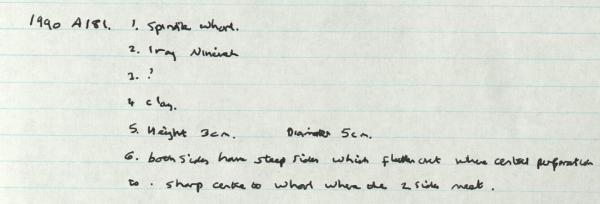 1990 A181. 1. Spindle whorl.
2. Iraq Nineveh
3. ?
4 clay.
5. Height 3cm. Diameter 5cm.
6. both sides have steep sides which flatten out where central perforation
is . sharp centre to whorl where the 2 sides meet .